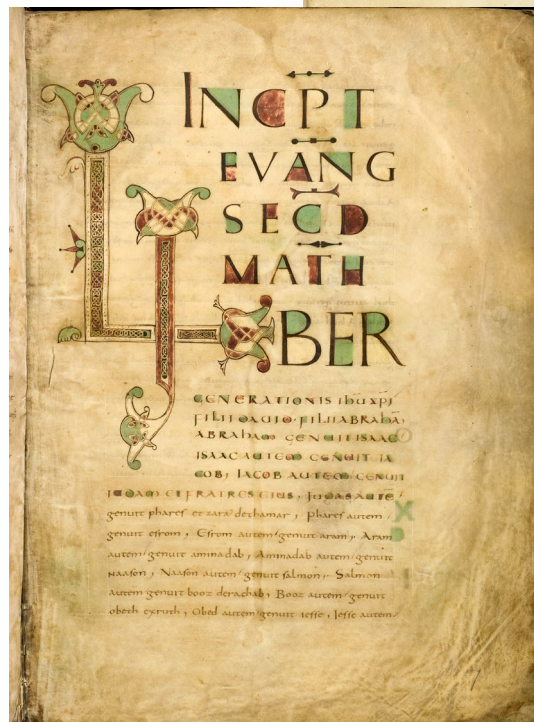 INCP̄T
EVANG
SECD
MATH
LIBER
GENERATIONIS ihū xp̄i
FILII DAUID · FILII ABRAHĀ,
ABRAHAM GENUIT ISAAC
ISAAC AUTEM GENUIT IA
COB, IACOB AUTEM GENUIT
IUDAM ET FRATRES EIUS, Iudas autē
genuit phares et zara dethamar, Phares autem
genuit esrom, Esrom autem genuit aram, Aram
autem genuit aminadab, Aminadab autem genuit
naason, Naason autem genuit salmon, Salmon
autem genuit booz derachab, Booz autem genuit
obeth exruth, Obed autem genuit iesse, Iesse autem